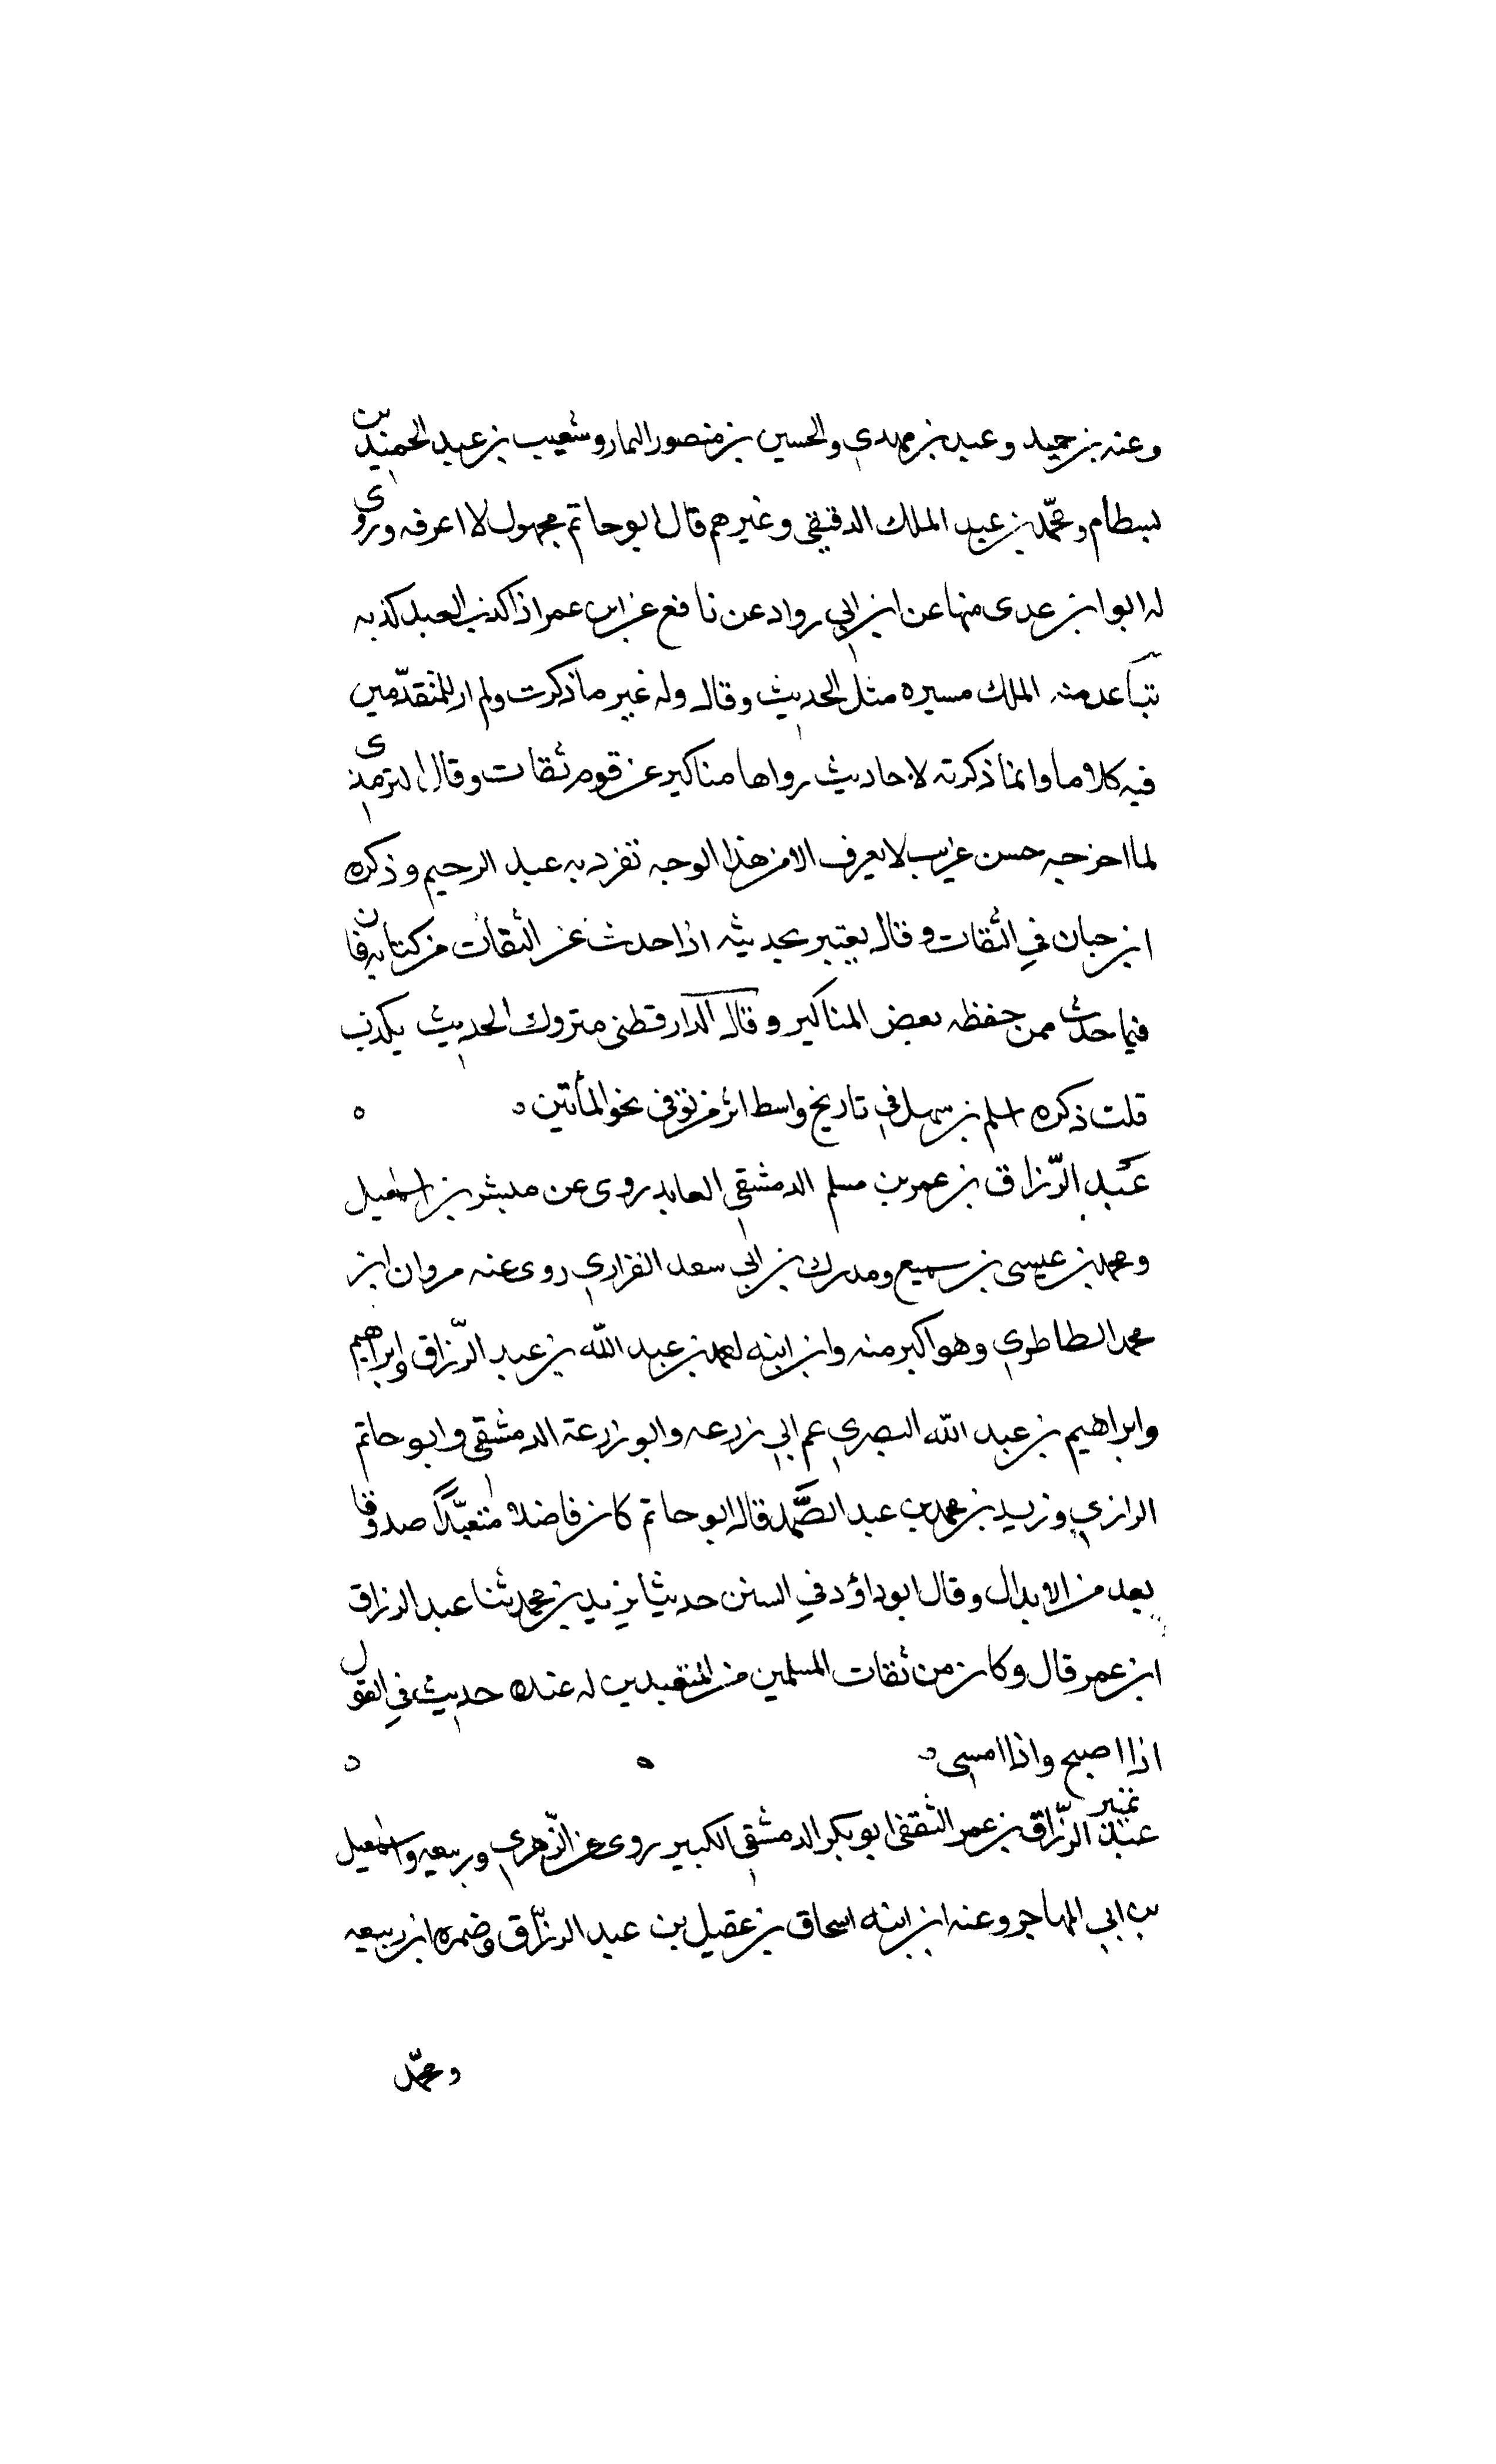 وعنه بن حميد وعبد بن مهدي والحسين بن منصور التمار وشعيب بن عبد الحميد بن
بسطام ومحمّد بن عبد الملك الدقيقي وغيرهم قال ابو حاتم مجهول لا اعرفه وروى
له ابو ابن عدى منها عن ابن ابي رواد عن نافع عن ابن عمر اذا كذب العبد كذبه
تباعد منه الملك مسيره مثل الحديث وقال وله غير ما ذكرت ولم ار للمتقدّمين
فيه كلاما وانما ذكرته لاحاديث رواها مناكير عن قوم ثقات وقال الترمذى
لما اخرجه حسن غريب لا يعرف الا من هذا الوجه تفرد به عبد الرحيم وذكره
ابن حبان في الثقات وقال يعتبر بحديثه اذا حدث عن الثقات من كتابه فان
فيما حدث ممن حفظه بعض المناكير وقال الدارقطنى متروك الحديث يكذب
قلت ذكره اسلم بن سهل في تاريخ واسط انه من توفى نحو المأتين
عَبد الرّزاق بن عمر بن مسلم الدمشقي العابد روى عن مبشر بن اسمعيل
ومحمد بن عيسى بن سميع ومدرك بن ابي سعد الفزاري روى عنه مروان ابن
محمد الطاطري وهو اكبر منه وابن ابنه لعمد بن عبد الله بن عبد الرّزاق وابراهيم
وابراهيم بن عبد الله البصري عم ابي زرعه وابو زرعة الدمشقي وابو حاتم
الرازي وزيد بن محمد بن عبد الصَّمَد قال ابو حاتم كان فاضلا متعبّدًا صدوقا
يعد من الابدال وقال ابو داؤد في السنن حديثا يزيد بن محمد ثنا عبد الرزاق
ابن عمر قال وكان من ثقات المسلمين من المتعبدين له عنده حديث في القول
اذا اصبح واذا امسى
تمييز
عبد الرّزاق بن عمر الثقفى ابو بكر الدمشقي الكبير روى عن الزّهري وربيعه واسمعيل
بن ابي المهاجر وعنه ابن ابنه اسحاق بن عقيل بن عبد الرزّاق وضمره ابن ربيعه
ومحمّد